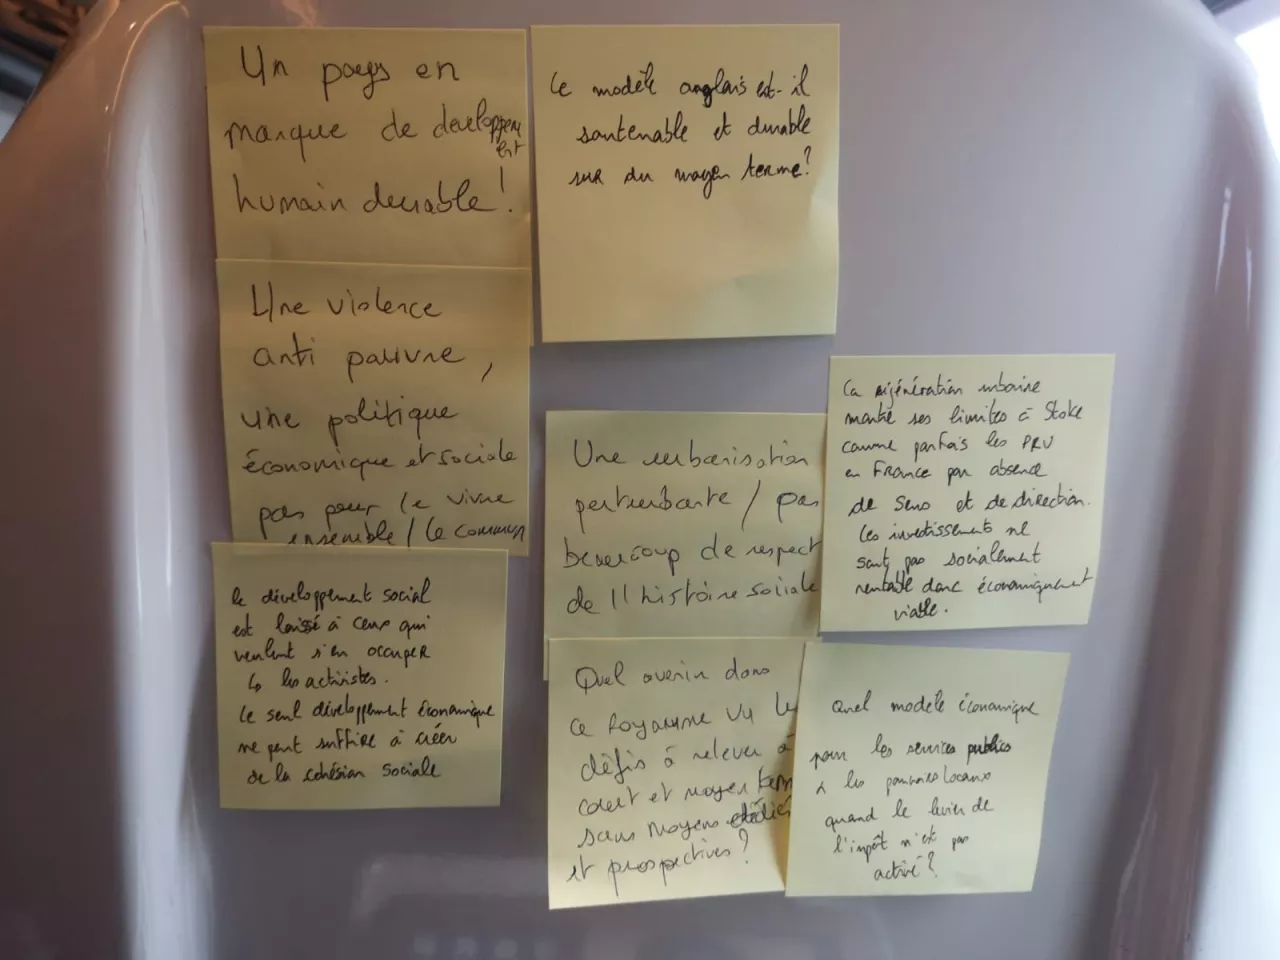 Un pays en
manque de developpem
ent
humain durable !
Le modèle anglais est-il
soutenable et durable
sur du moyen terme ?
Une violence
anti pauvre,
une politique
économique et sociale
pas pour le vivre
ensemble / le commun
le développement social
est laissé à ceux qui
veulent s'en occuper
↳ les activistes.
Le seul développement économique
ne peut suffire à créer
de la cohésion sociale
Une urbanisation
perturbante / pas
beaucoup de respect
de l'histoire sociale
La régénération urbaine
montre ses limites à Stoke
comme parfois les PRU
en France par absence
de sens et de direction.
Les investissements ne
sont pas socialement
rentable donc économiquement
viable.
Quel avenir dans
ce Royaume Vu le
défis à relever à
court et moyen term
sans moyens dédiés
et prospectives ?
Quel modèle économique
pour les services publics
& les pouvoirs locaux
quand le levier de
l'impôt n'est pas
activé ?